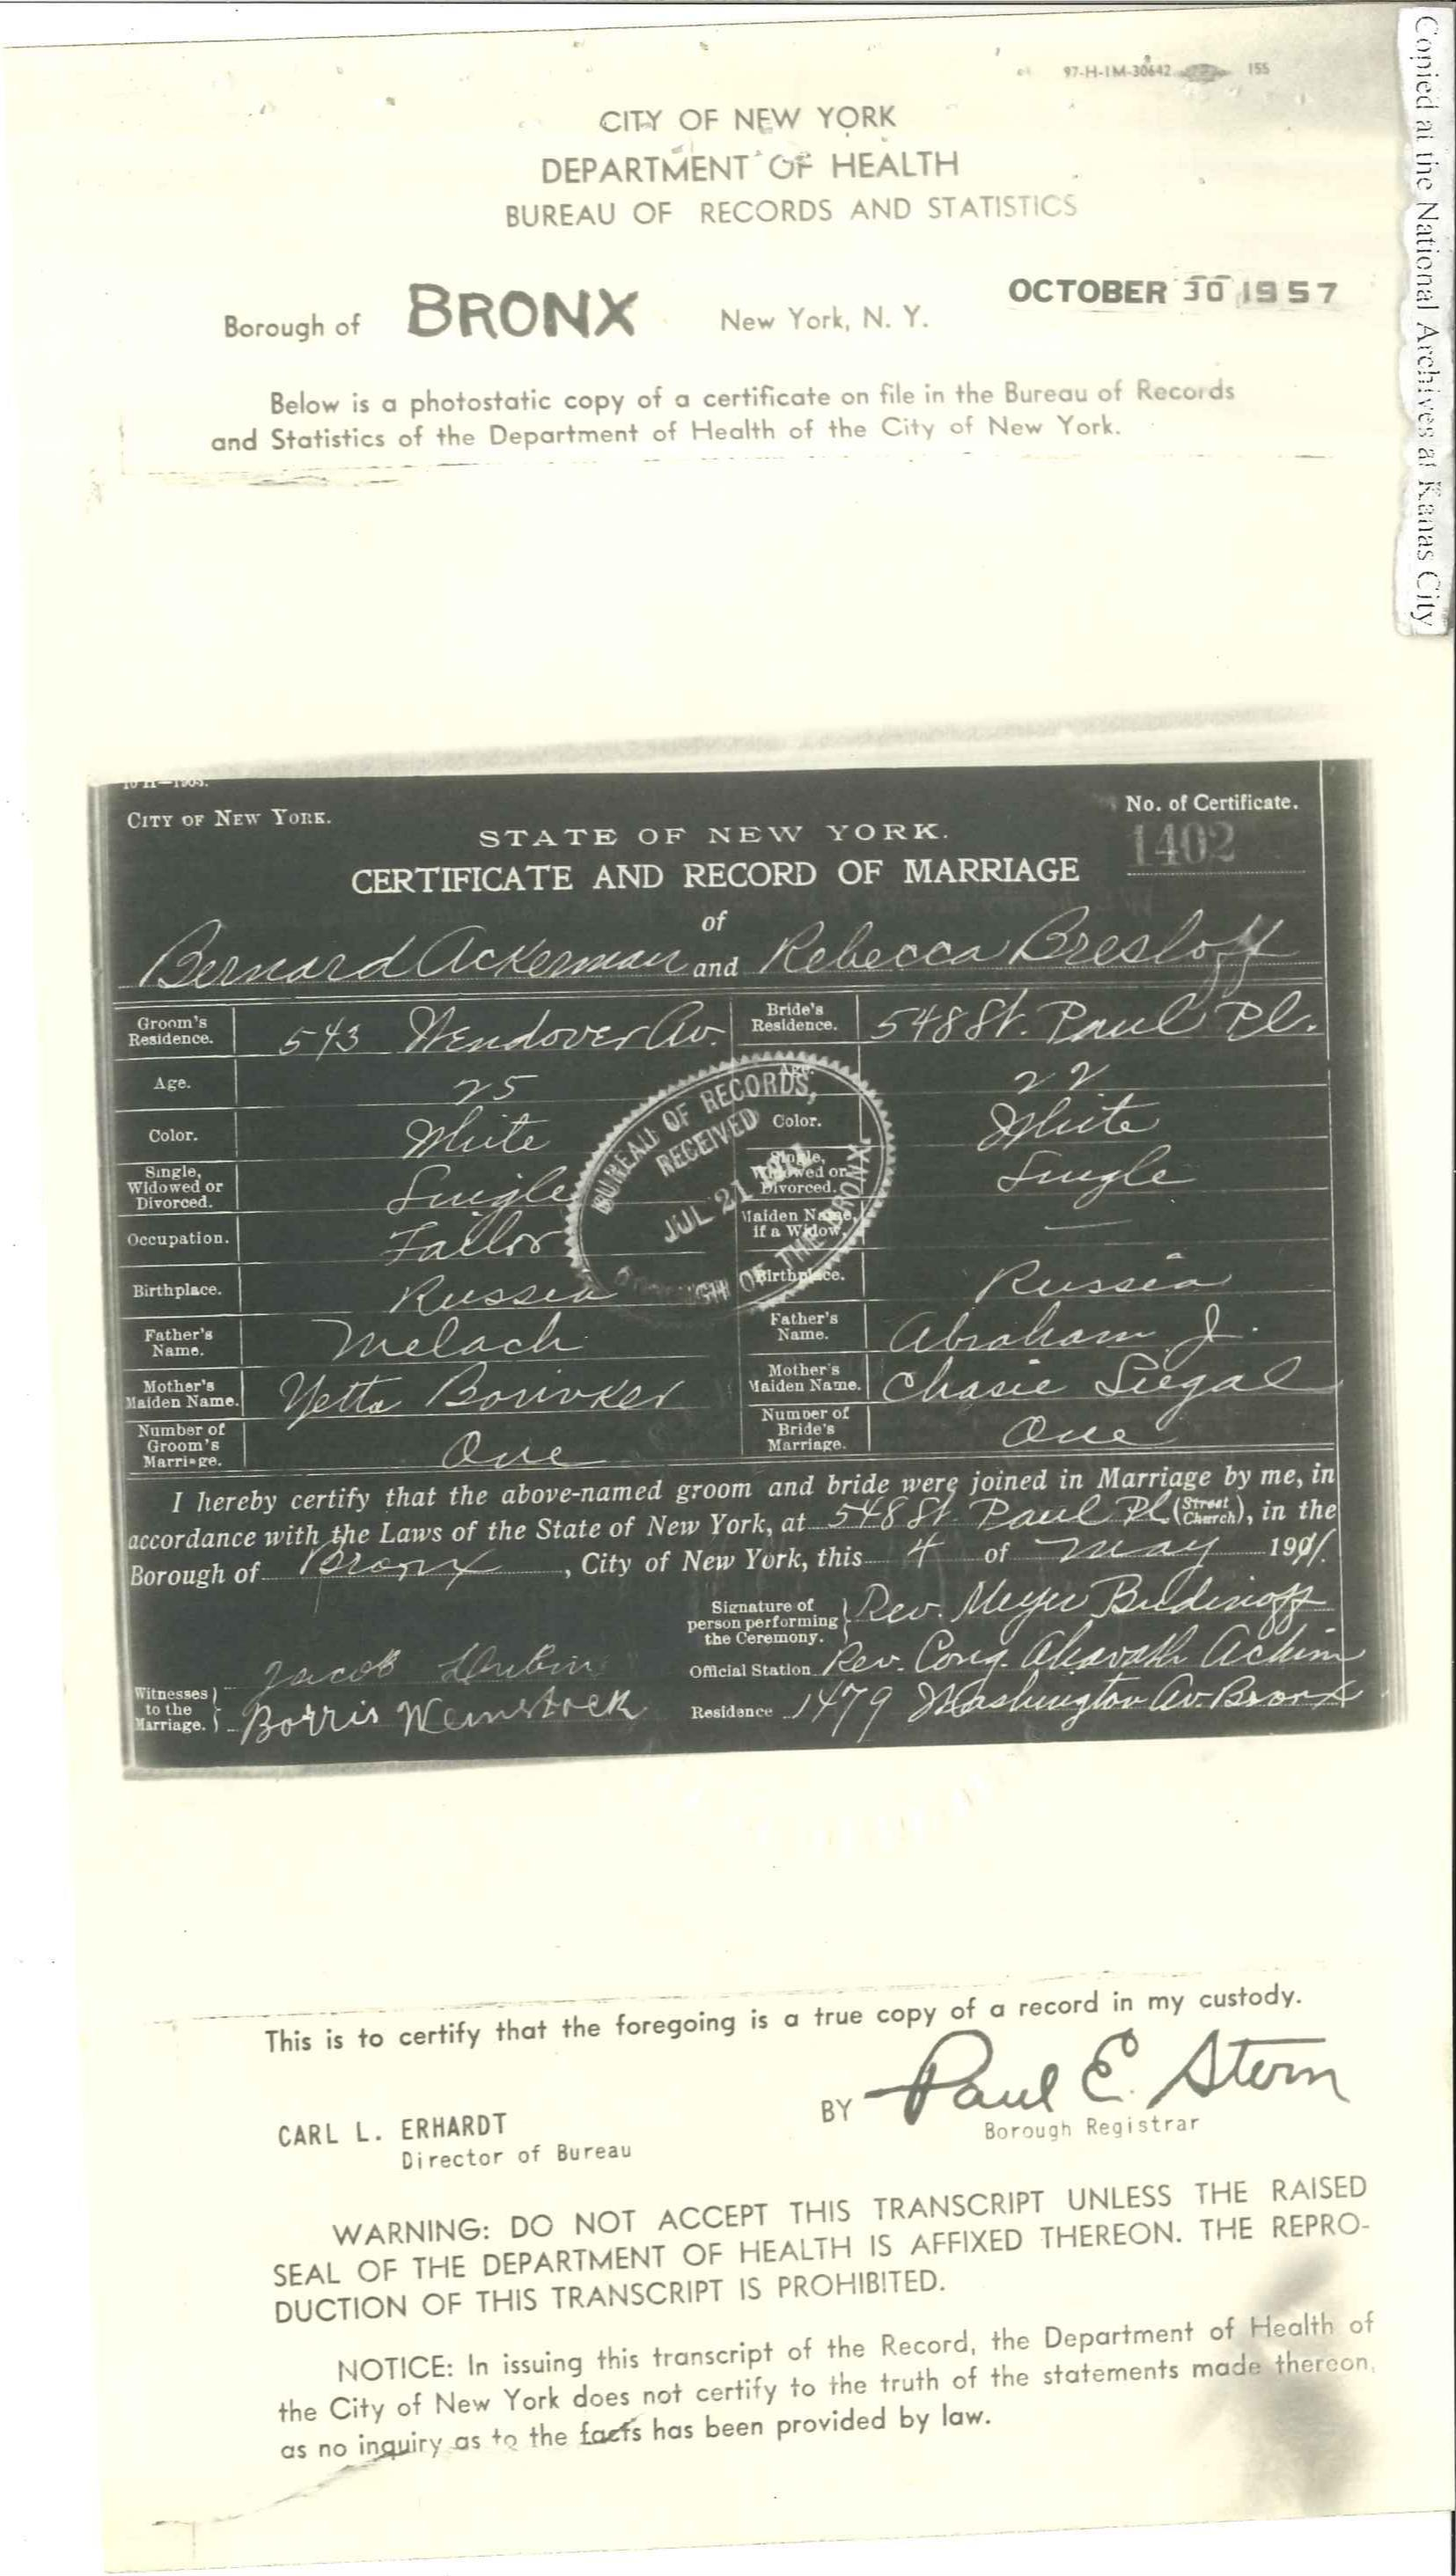 Copied at the National Archives at Kanas City
97-H-1M-30642 155
CITY OF NEW YORK
DEPARTMENT OF HEALTH
BUREAU OF RECORDS AND STATISTICS
OCTOBER 30 1957
Borough of BRONX New York, N. Y.
Below is a photostatic copy of a certificate on file in the Bureau of Records
and Statistics of the Department of Health of the City of New York.
CITY OF NEW YORK.
No. of Certificate.
1402
STATE OF NEW YORK.
CERTIFICATE AND RECORD OF MARRIAGE
of
Bernard Ackerman and Rebecca Bresloff
Groom's Residence. 543 Wendover Av. Bride's Residence. 548 St. Paul Pl.
Age. 25 Age. 22
Color. White Color. White
Single, Widowed or Divorced. Single Single, Widowed or Divorced. Single
Occupation. Maiden Name, if a Widow. —
Birthplace. Russia Birthplace. Russia
Father's Name. Melach Father's Name. Abraham J.
Mother's Maiden Name. Yetta Mother's Maiden Name. Chasie Siegal
Number of Groom's Marriage. One Number of Bride's Marriage. One
BUREAU OF RECORDS,
RECEIVED
JUL 21
BOROUGH OF THE BRONX
I hereby certify that the above-named groom and bride were joined in Marriage by me, in
accordance with the Laws of the State of New York, at 548 St. Paul Pl (Street Church), in the
Borough of Bronx, City of New York, this 4 of May 191
Signature of person performing the Ceremony. Rev. Meyer Budinoff
Official Station Rev. Cong. Ahavath Achim
Residence 1479 Washington Av. Bronx
Witnesses to the Marriage. Jacob
Borris Weinstock
This is to certify that the foregoing is a true copy of a record in my custody.
BY Paul E. Stern
Borough Registrar
CARL L. ERHARDT
Director of Bureau
WARNING: DO NOT ACCEPT THIS TRANSCRIPT UNLESS THE RAISED
SEAL OF THE DEPARTMENT OF HEALTH IS AFFIXED THEREON. THE REPRO-
DUCTION OF THIS TRANSCRIPT IS PROHIBITED.
NOTICE: In issuing this transcript of the Record, the Department of Health of
the City of New York does not certify to the truth of the statements made thereon,
as no inquiry as to the facts has been provided by law.